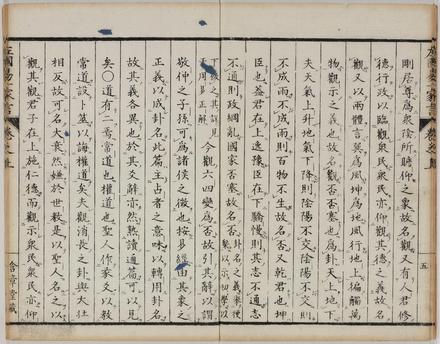 剛居尊爲衆陰所瞻仰之象故名觀又有人君修
德行政以臨觀衆民衆民亦仰觀其德之義故名
觀又以兩體言巽爲風坤爲地風行地上徧觸萬
物觀示之義也故名觀否否塞也爲卦天上地下
夫天氣上升地氣下降則陰陽不交陰陽不交則
不成雨不成雨則百物不生故名否又乾君也坤
臣也蓋君在上逸豫臣在下驕慢則其志不通志
不通則政綱亂國家否塞故名否
今觀六四變爲否故引其辭以謂
敬仲之子孫可爲諸侯之徵也按易經由其象之
正義以成卦名此篇主占者之意味以轉用卦名
故其義各異也於其爻辭亦然熟讀通篇可以見
矣〇道有二焉常道也權道也聖人作彖爻以敎
常道設卜筮以誨權道矣夫觀消長之卦與大壯
相反故可名大衰然嫌於世敎是以聖人名之以
觀其觀君子在上施仁德而觀示衆民衆民亦仰
五
含章堂藏